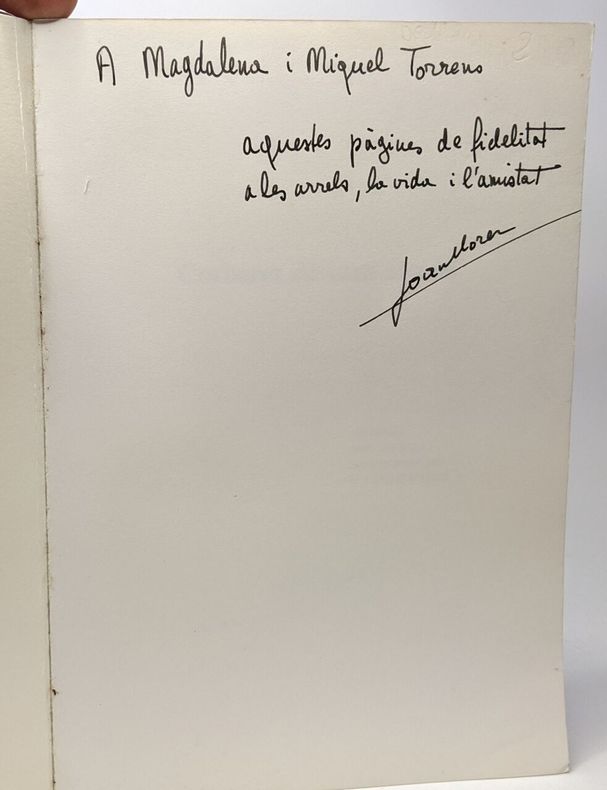 A Magdalena i Miquel Torrens
aquestes pàgines de fidelitat
a les arrels, la vida i l'amistat